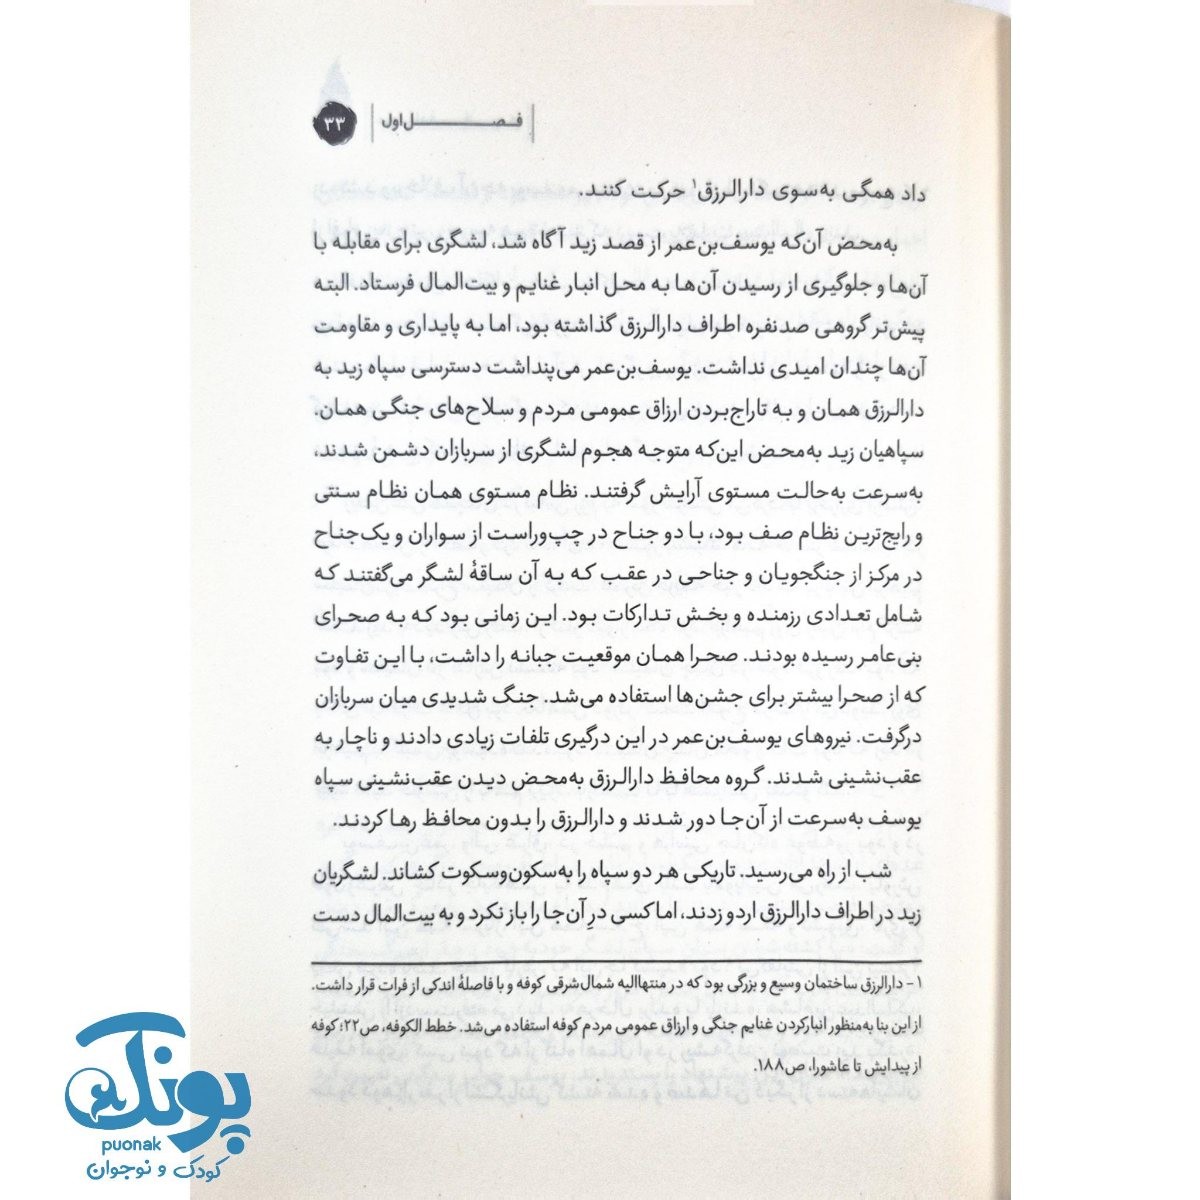 فصل اول
۳۳
داد همگی به‌سوی دارالرزق۱ حرکت کنند.
به‌محض آن‌که یوسف‌بن‌عمر از قصد زید آگاه شد، لشگری برای مقابله با
آن‌ها و جلوگیری از رسیدن آن‌ها به محل انبار غنایم و بیت‌المال فرستاد. البته
پیش‌تر گروهی صدنفره اطراف دارالرزق گذاشته بود، اما به پایداری و مقاومت
آن‌ها چندان امیدی نداشت. یوسف‌بن‌عمر می‌پنداشت دسترسی سپاه زید به
دارالرزق همان و به تاراج‌بردن ارزاق عمومی مردم و سلاح‌های جنگی همان.
سپاهیان زید به‌محض این‌که متوجه هجوم لشگری از سربازان دشمن شدند،
به‌سرعت به‌حالت مستوی آرایش گرفتند. نظام مستوی همان نظام سنتی
و رایج‌ترین نظام صف بود، با دو جناح در چپ‌وراست از سواران و یک‌جناح
در مرکز از جنگجویان و جناحی در عقب که به آن ساقهٔ لشگر می‌گفتند که
شامل تعدادی رزمنده و بخش تدارکات بود. این زمانی بود که به صحرای
بنی‌عامر رسیده بودند. صحرا همان موقعیت جبانه را داشت، با این تفاوت
که از صحرا بیشتر برای جشن‌ها استفاده می‌شد. جنگ شدیدی میان سربازان
درگرفت. نیروهای یوسف‌بن‌عمر در این درگیری تلفات زیادی دادند و ناچار به
عقب‌نشینی شدند. گروه محافظ دارالرزق به‌محض دیدن عقب‌نشینی سپاه
یوسف به‌سرعت از آن‌جا دور شدند و دارالرزق را بدون محافظ رها کردند.
شب از راه می‌رسید. تاریکی هر دو سپاه را به‌سکون‌وسکوت کشاند. لشگریان
زید در اطراف دارالرزق اردو زدند، اما کسی درِ آن‌جا را باز نکرد و به بیت‌المال دست
۱- دارالرزق ساختمان وسیع و بزرگی بود که در منتهاالیه شمال‌شرقی کوفه و با فاصلهٔ اندکی از فرات قرار داشت.
از این بنا به‌منظور انبارکردن غنایم جنگی و ارزاق عمومی مردم کوفه استفاده می‌شد. خطط الکوفه، ص۲۲؛ کوفه
از پیدایش تا عاشورا، ص۱۸۸.
پونک
puonak
کودک و نوجوان